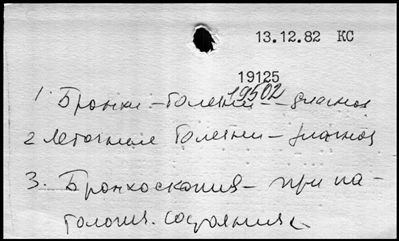 13.12.82 КС
19125
19502
1. Бронхи – болезни – диагноз
2 Легочные болезни – диагноз
3. Бронхоскопия – при па-
тология. состояниях